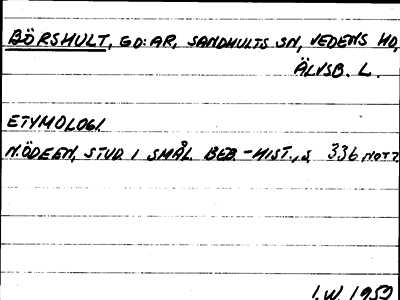 BÖRSHULT, GD:AR, SANDHULTS SN, VEDENS HD,
ÄLVSB. L.
ETYMOLOGI.
N. ÖDEEN, STUD. I SMÅL. BEB.-HIST., S. 336 NOT 7.
I.W. 1959